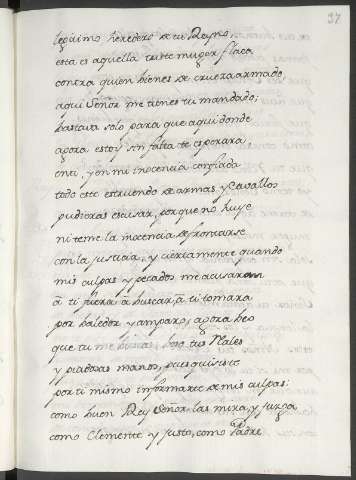 37
legitimo heredero de tu Reyno,
esta es aquella triste muger flaca
contra quien bienes de crueza armado
aqui Señor me tienes tu mandado;
bastava solo para que aqui donde
agora estoy sin falta te esperara,
en ti, y en mi inocencia confiada
todo este estruendo de armas y Cavallos
pudieras escusar, porque no huye
ni teme la inocencia de frontarse
con la justicia, y ciertamente quando
mis culpas y pecados me acusaran
a ti fuera a buscar, a ti tomara
por baledor y amparo, agora beo
que tu me buscas, beso tus Reales
y piadosas manos, pues quisiste
por ti mismo informarte de mis culpas:
como buen Rey Señor las mira, y juzga
como Clemente y justo, como Padre